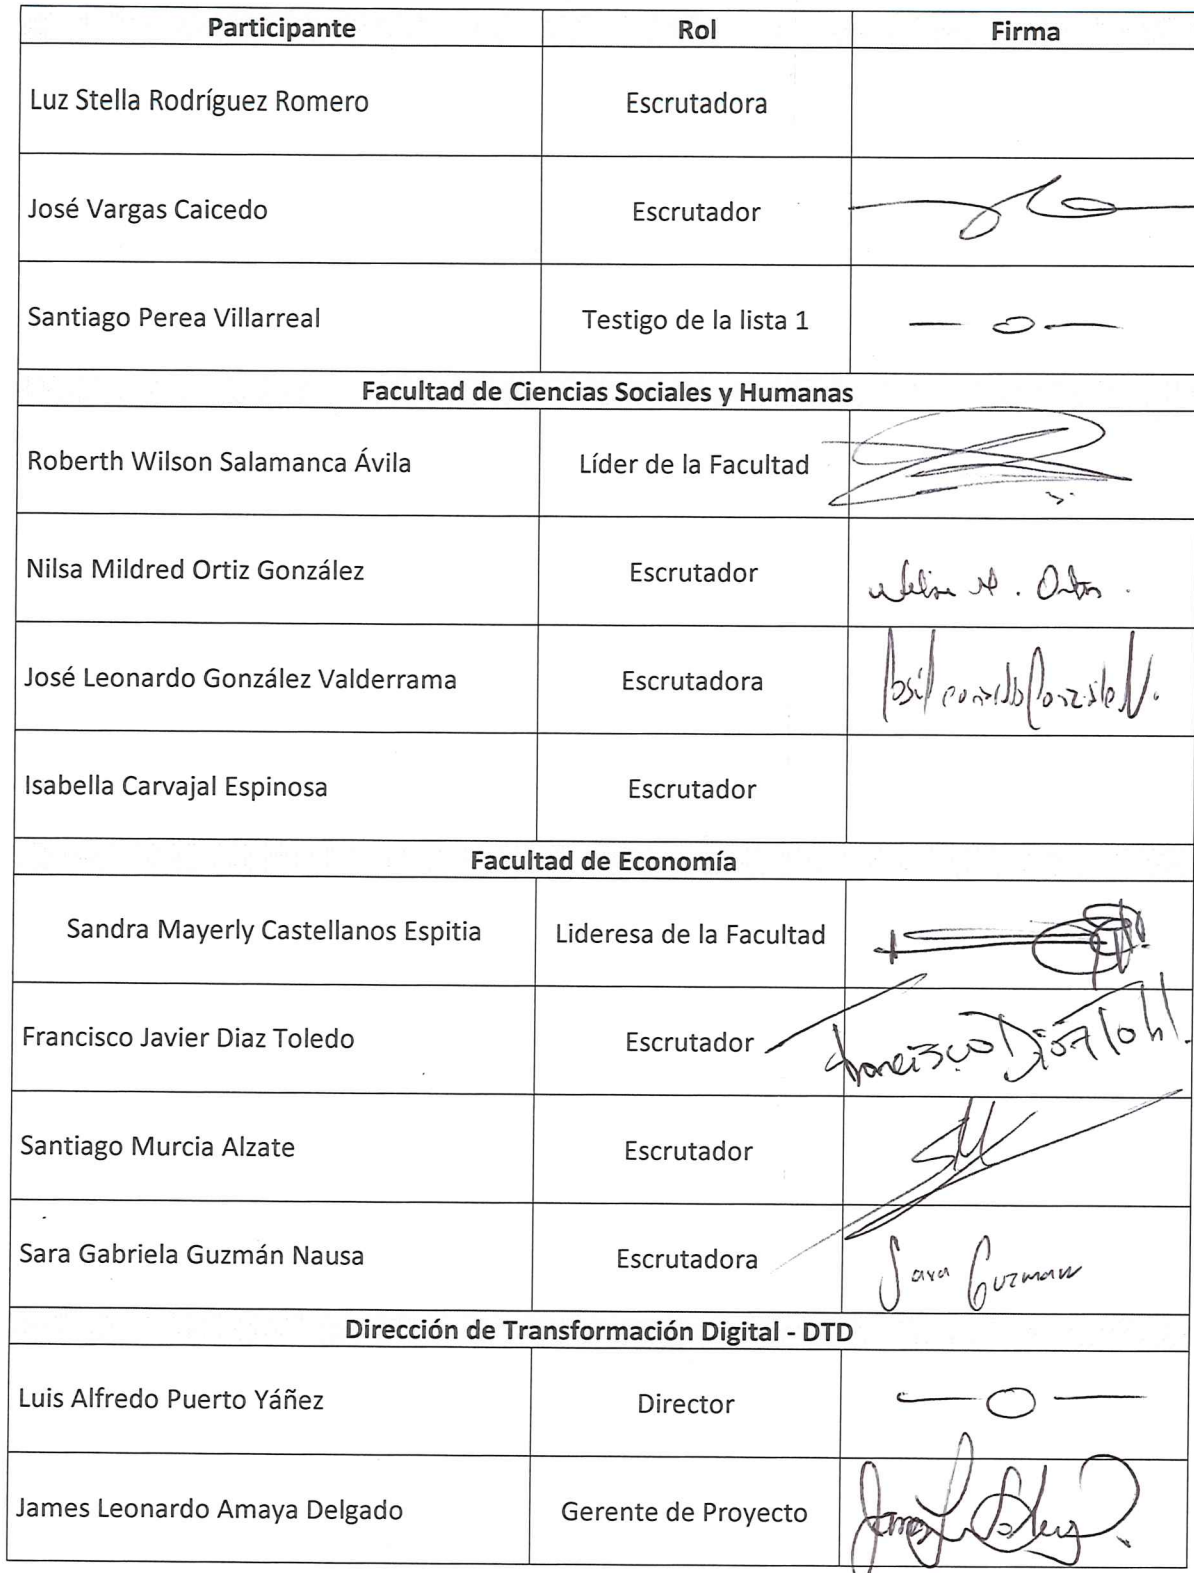 Participante Rol Firma
Luz Stella Rodríguez Romero Escrutadora
José Vargas Caicedo Escrutador
Santiago Perea Villarreal Testigo de la lista 1 — o —
Facultad de Ciencias Sociales y Humanas
Roberth Wilson Salamanca Ávila Líder de la Facultad
Nilsa Mildred Ortiz González Escrutador
José Leonardo González Valderrama Escrutadora José Leonardo González V.
Isabella Carvajal Espinosa Escrutador
Facultad de Economía
Sandra Mayerly Castellanos Espitia Lideresa de la Facultad
Francisco Javier Diaz Toledo Escrutador Francisco Díaz
Santiago Murcia Alzate Escrutador SM
Sara Gabriela Guzmán Nausa Escrutadora Sara Guzman
Dirección de Transformación Digital - DTD
Luis Alfredo Puerto Yáñez Director — O —
James Leonardo Amaya Delgado Gerente de Proyecto James